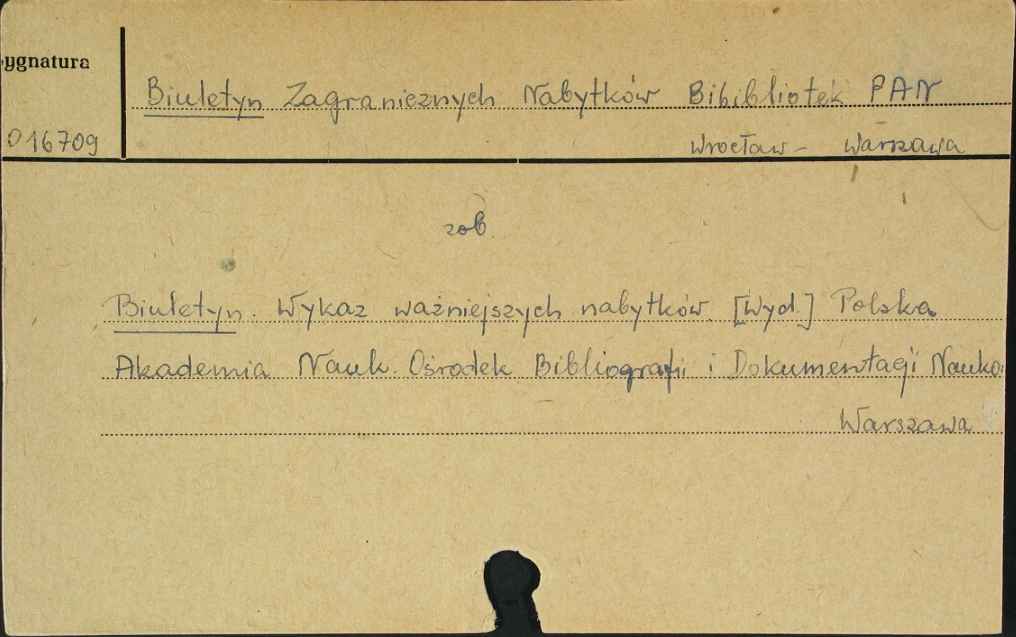 ygnatura
Biuletyn Zagranicznych Nabytków Bibibliotek PAN
016709
Wrocław - Warszawa
zob.
Biuletyn. Wykaz ważniejszych nabytków. [Wyd.] Polska
Akademia Nauk. Ośrodek Bibliografii i Dokumentacji Nauko.
Warszawa